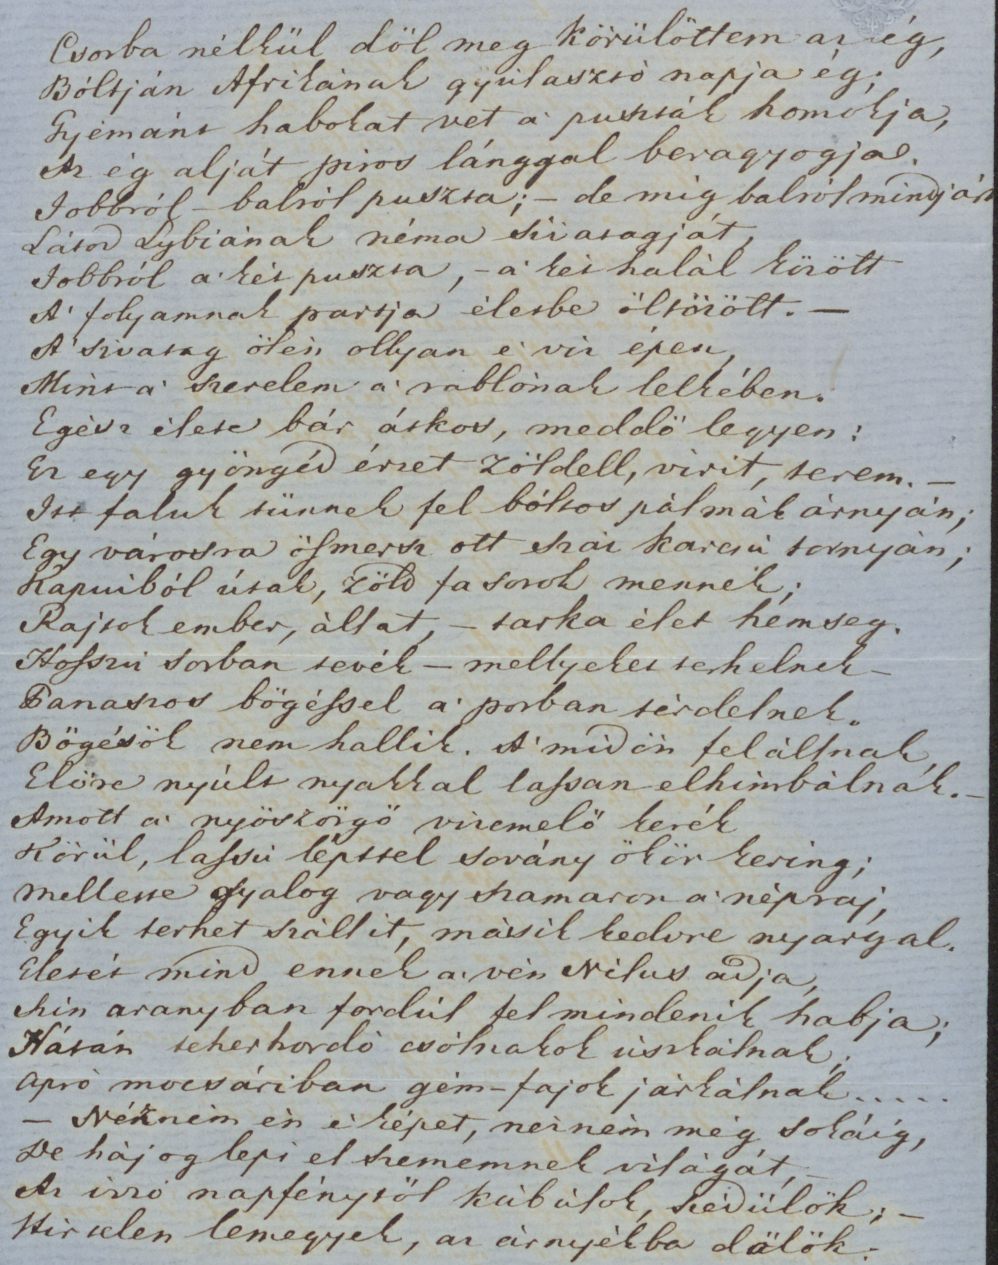 Csorba nélkül döl meg körülöttem az ég,
Bóltján Afrikának gyúlasztó napja ég;
Gyémánt habokat vet a' puszták homokja,
Az ég alját piros lánggal beragyogja.
Jobbról – balról puszta; – de míg balról mindjárt
Látod Lybiának néma sivatagját,
Jobbról a' két puszta, – a' két halál között
A' folyamnak partja életbe öltözött. –
A' sivatag ölén ollyan e' víz épen,
Mint a' szerelem a' rablónak lelkében.
Egész élete bár átkos, meddő legyen:
Ez egy gyöngéd érzet zöldell, virít, terem. –
Itt faluk tünnek fel bóltos pálmák árnyán;
Egy városra ösmersz ott száz karcsú tornyán;
Kapuiból útak, zöld fasorok mennek;
Rajtok ember, állat, – tarka élet hemseg.
Hosszú sorban tevék – mellyeket terhelnek –
Panaszos bögéssel a' porban térdelnek.
Bögésök nem hallik. A' midőn felállnak,
Előre nyúlt nyakkal lassan elhimbálnak. –
Amott a' nyöszörgő vizemelő kerék
Körül, lassú lépttel sovány ökör kering;
Mellette gyalog vagy szamaron a' népraj,
Egyik terhet szállit, másik kedvre nyargal.
Életét mind ennek a' vén Nilus adja,
Szin aranyban fordúl fel mindenik habja;
Hátán teherhordó csólnakok úszkálnak,
Apró mocsáriban gém-fajok járkálnak.....
– Nézném én e' képet, nézném még sokáig,
De hályog lepi el szememnek világát, –
Az izzó napfénytől kábúlok, szédülök; –
Hirtelen lemegyek, az árnyékba dűlök.